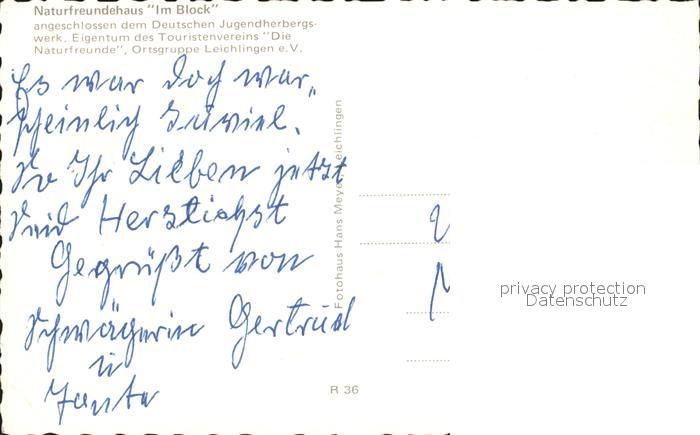 Naturfreundehaus "Im Block"
angeschlossen dem Deutschen Jugendherbergs-
werk. Eigentum des Touristenvereins "Die
Naturfreunde", Ortsgruppe Leichlingen e.V.
Es war doch war„
scheinlich zuviel.
So Ihr Lieben jetzt
seid Herzlichst
Gegrüßt von
Schwägerin Gertrud
u
Tante
Fotohaus Hans Meyer, Leichlingen
R 36
privacy protection
Datenschutz